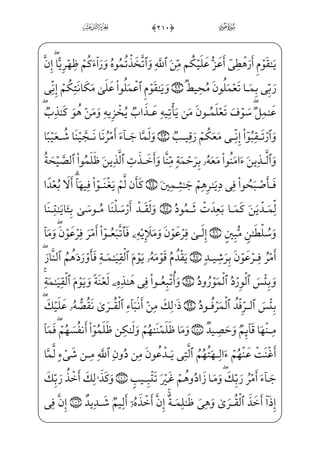 سُورَةُ هُودٍ ﴿٢١٠﴾ الجزء الثاني عشر
يَـٰقَوْمِ أَرَهْطِىٓ أَعَزُّ عَلَيْكُم مِّنَ ٱللَّهِ وَٱتَّخَذْتُمُوهُ وَرَآءَكُمْ ظِهْرِيًّا ۖ إِنَّ
رَبِّى بِمَا تَعْمَلُونَ مُحِيطٌ ٩٢ وَيَـٰقَوْمِ ٱعْمَلُوا۟ عَلَىٰ مَكَانَتِكُمْ إِنِّى
عَـٰمِلٌ ۖ سَوْفَ تَعْلَمُونَ مَن يَأْتِيهِ عَذَابٌ يُخْزِيهِ وَمَنْ هُوَ كَـٰذِبٌ ۖ
وَٱرْتَقِبُوٓا۟ إِنِّى مَعَكُمْ رَقِيبٌ ٩٣ وَلَمَّا جَآءَ أَمْرُنَا نَجَّيْنَا شُعَيْبًا
وَٱلَّذِينَ ءَامَنُوا۟ مَعَهُۥ بِرَحْمَةٍ مِّنَّا وَأَخَذَتِ ٱلَّذِينَ ظَلَمُوا۟ ٱلصَّيْحَةُ
فَأَصْبَحُوا۟ فِى دِيَـٰرِهِمْ جَـٰثِمِينَ ٩٤ كَأَن لَّمْ يَغْنَوْا۟ فِيهَآ ۗ أَلَا بُعْدًا
لِّمَدْيَنَ كَمَا بَعِدَتْ ثَمُودُ ٩٥ وَلَقَدْ أَرْسَلْنَا مُوسَىٰ بِـَٔايَـٰتِنَا
وَسُلْطَـٰنٍ مُّبِينٍ ٩٦ إِلَىٰ فِرْعَوْنَ وَمَلَإِي۟هِۦ فَٱتَّبَعُوٓا۟ أَمْرَ فِرْعَوْنَ ۖ وَمَآ
أَمْرُ فِرْعَوْنَ بِرَشِيدٍ ٩٧ يَقْدُمُ قَوْمَهُۥ يَوْمَ ٱلْقِيَـٰمَةِ فَأَوْرَدَهُمُ ٱلنَّارَ ۖ
وَبِئْسَ ٱلْوِرْدُ ٱلْمَوْرُودُ ٩٨ وَأُتْبِعُوا۟ فِى هَـٰذِهِۦ لَعْنَةً وَيَوْمَ ٱلْقِيَـٰمَةِ ۚ
بِئْسَ ٱلرِّفْدُ ٱلْمَرْفُودُ ٩٩ ذَٰلِكَ مِنْ أَنۢبَآءِ ٱلْقُرَىٰ نَقُصُّهُۥ عَلَيْكَ ۖ
مِنْهَا قَآئِمٌ وَحَصِيدٌ ١٠٠ وَمَا ظَلَمْنَـٰهُمْ وَلَـٰكِن ظَلَمُوٓا۟ أَنفُسَهُمْ ۖ فَمَآ
أَغْنَتْ عَنْهُمْ ءَالِهَتُهُمُ ٱلَّتِى يَدْعُونَ مِن دُونِ ٱللَّهِ مِن شَىْءٍ لَّمَّا
جَآءَ أَمْرُ رَبِّكَ ۖ وَمَا زَادُوهُمْ غَيْرَ تَتْبِيبٍ ١٠١ وَكَذَٰلِكَ أَخْذُ رَبِّكَ
إِذَآ أَخَذَ ٱلْقُرَىٰ وَهِىَ ظَـٰلِمَةٌ ۚ إِنَّ أَخْذَهُۥٓ أَلِيمٌ شَدِيدٌ ١٠٢ إِنَّ فِى